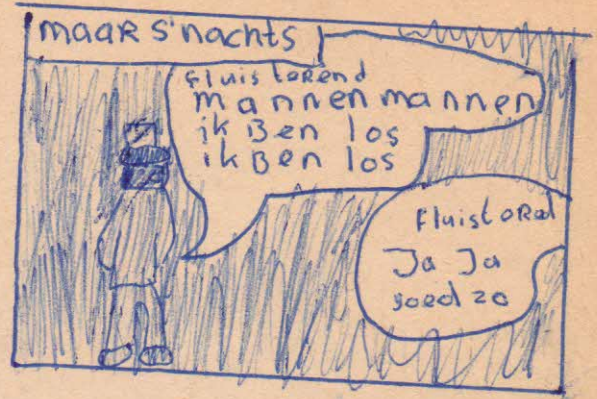 maar s'nachts
fluistorend
mannen mannen
ik Ben los
ik Ben los
fluistored
Ja Ja
goed zo